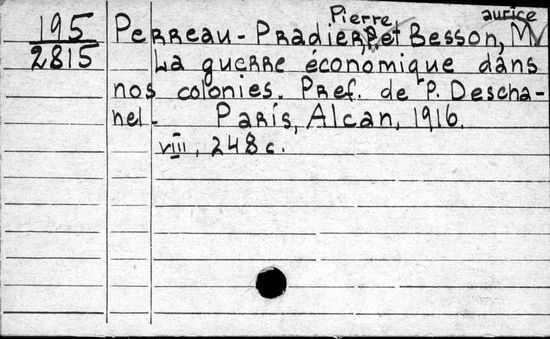 Pierre aurice
195 Perreau-Pradier, P. et Besson, M
2815 La guerre économique dans
nos colonies. Pref. de P. Descha-
nel. Paris, Alcan, 1916.
viii, 248 c.